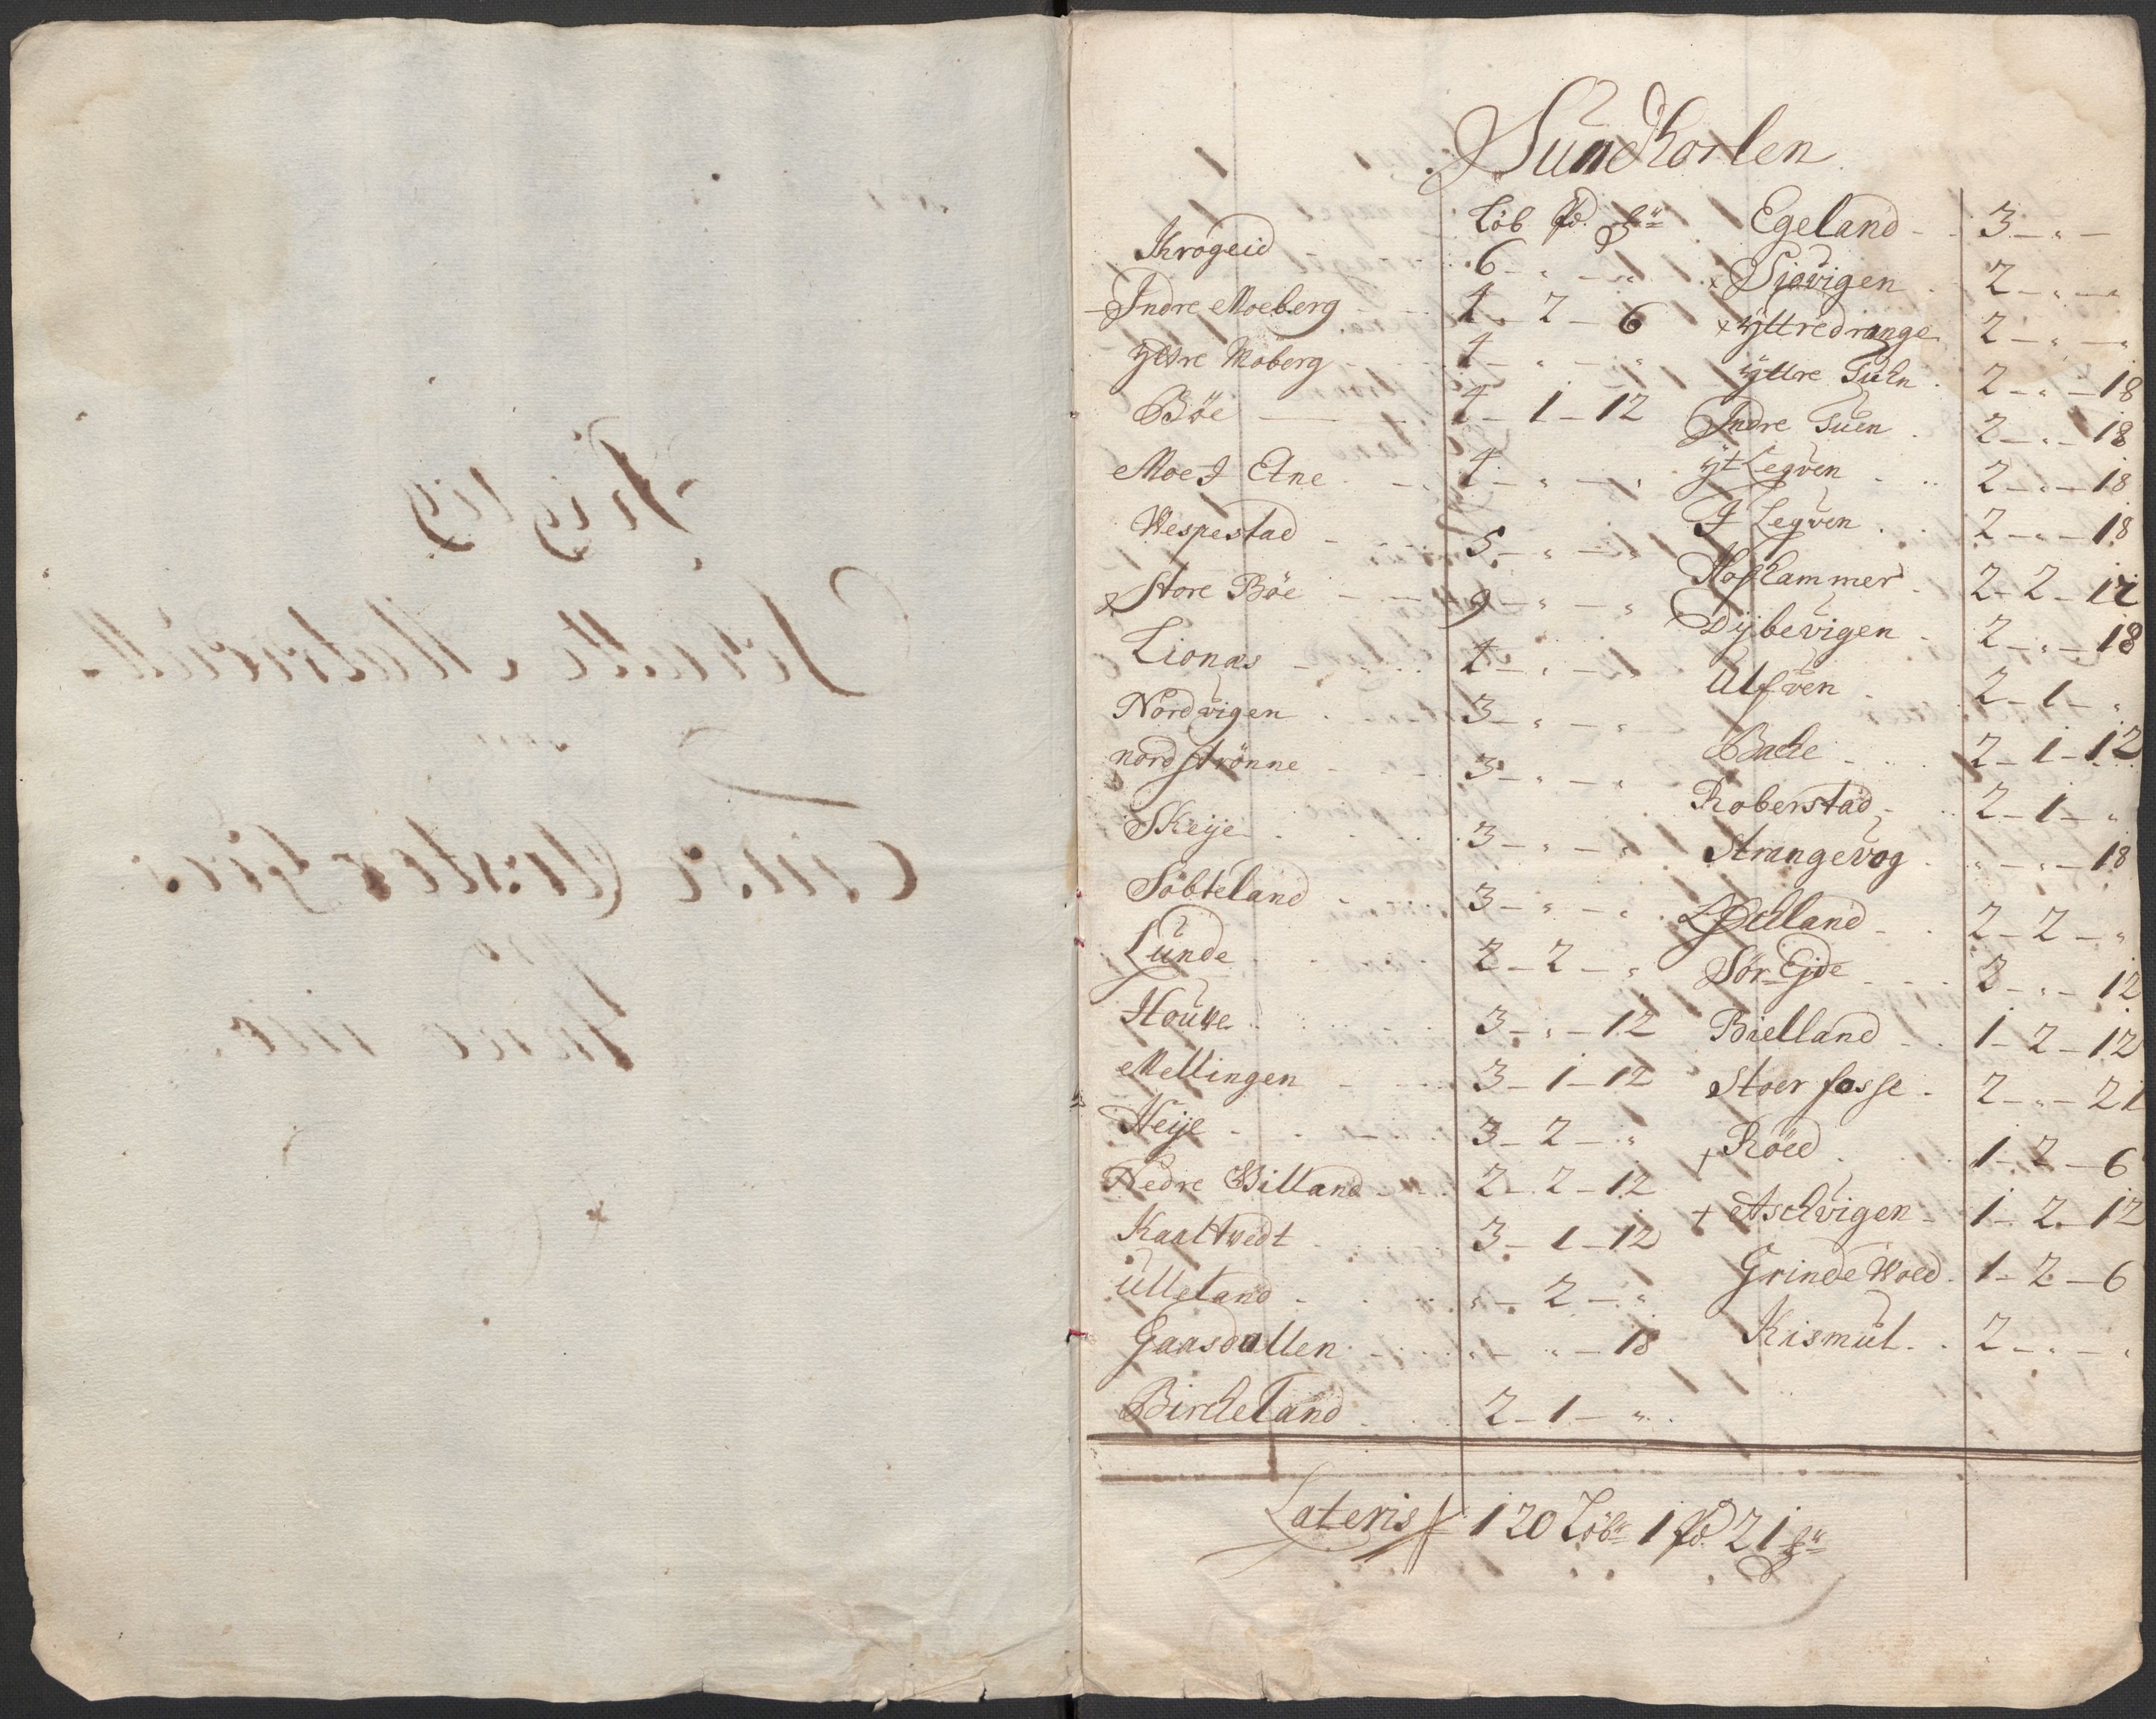 Sundhorlen
Löb pd. ℔
Krogeid 6 - " - "
Indre Moeberg 4 - 2 - 6
ytre Moberg 4 - " - "
Böe 4 - 1 - 12
Moe I Etne 4 - " - "
Wespestad 5 - " - "
Store Böe 9 - " - "
Lionæs 4 - " - "
Nordvigen 3 - " - "
nordströnne 3 - " - "
Skeije 3 - " - "
Söbteland 3 - " - "
Lunde 2 - 2 - "
Houve 3 - " - 12
Mellingen 3 - 1 - 12
Heije 3 - 2 - "
Nedre Billand 2 - 2 - 12
Kaaltvedt 3 - 1 - 12
Ulleland " - 2 - "
Gaasdallen " - " - 18
Bircheland 2 - 1 - "
Egeland 3 - " -
x Siøvigen 2 - " - "
x yttredrange 2 - " - "
yttre Tuen 2 - " - 18
Indre Tuen 2 - " - 18
yt Legven 2 - " - 18
I Legven 2 - " - 18
Hofhammer 2 - 2 - 12
Dybevigen 2 - " - 18
Ulfven 2 - 1 - "
Bache 2 - 1 - 12
Roberstad 2 - 1 - "
Strangevog " - " - 18
2 - 2 - "
Sör Ejde 2 - " - 12
Bielland 1 - 2 - 12
Stoer fosse 2 - " - 21
+ Röed 1 - 2 - 6
+ Aschvigen 1 - 2 - 12
Grinde Wold 1 - 2 - 6
Kismul 2 - " - "
Lateris 120 Löb 1 pd 21 ℔